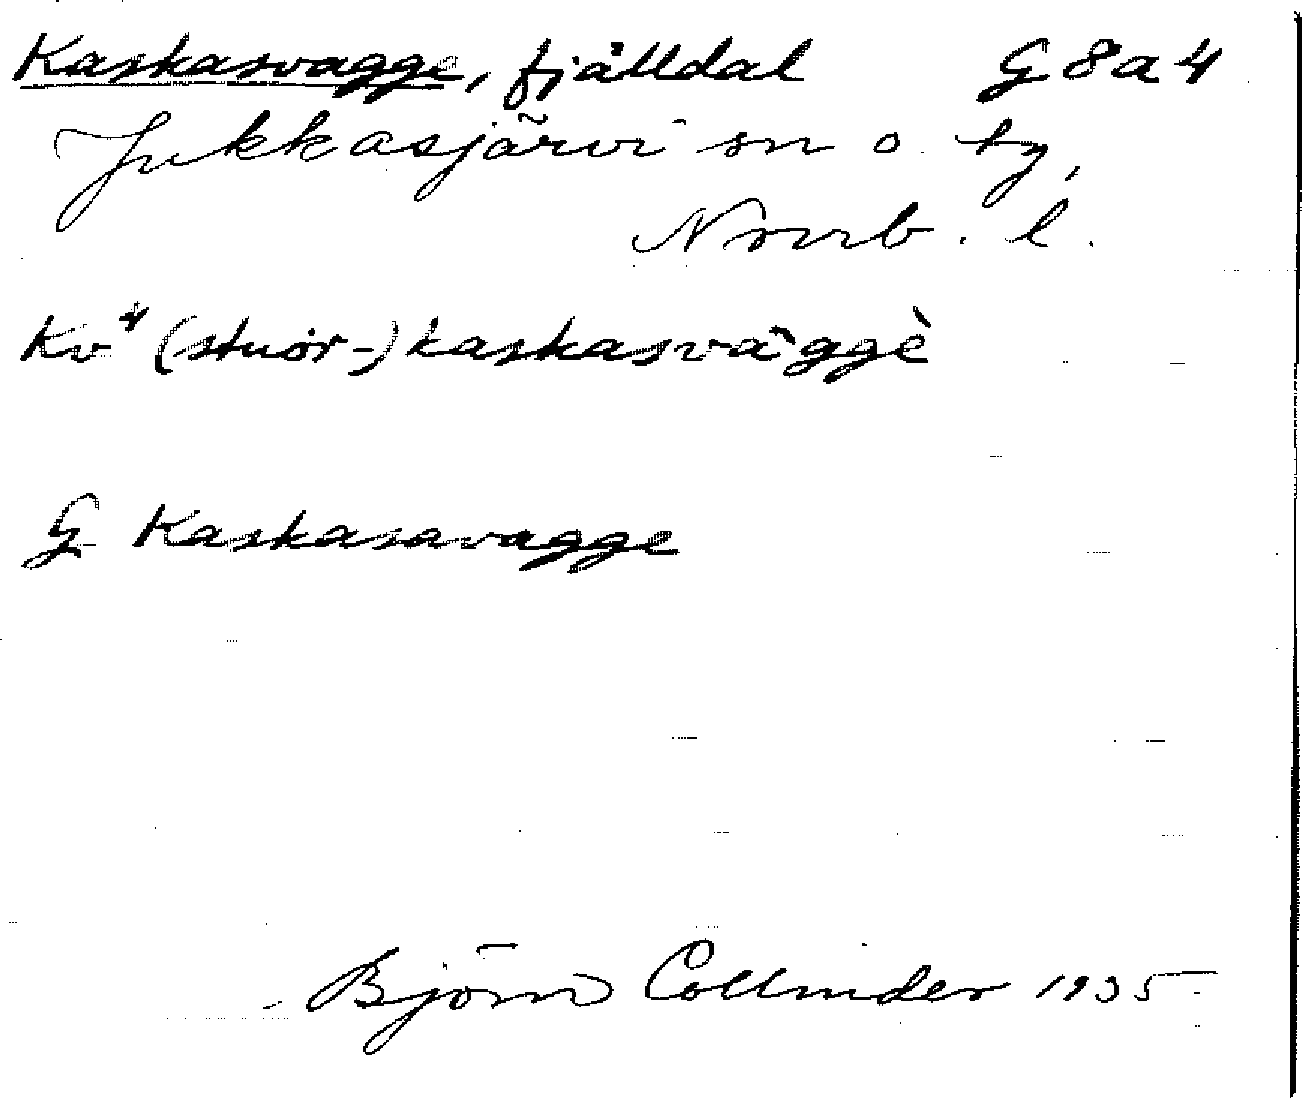 Kaskasvagge, fjälldal G8a4
Jukkasjärvi sn o. tg,
Norrb. l.
Kv⁴ (stuor-) kaskasvàggè
G Kaskasavagge
Björn Collinder 1935